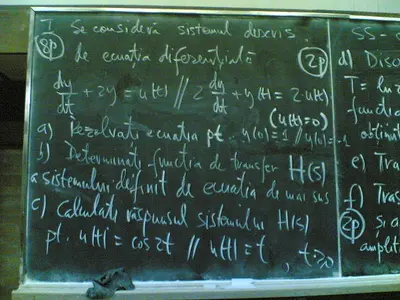 I Se consideră sistemul descris
8p de ecuația diferențială 2p
dy/dt + 2y = u(t) // 2 dy/dt + y(t) = 2·u(t)
(u(t)=0)
a) Rezolvați ecuația pt. y(0)=1 // y(0)=-1
b) Determinați funcția de transfer H(s)
a sistemului definit de ecuația de mai sus
c) Calculați răspunsul sistemului H(s)
pt. u(t) = cos 2t // u(t) = t, t≥0
SS -
d) Disc
T =
funcția
obținut
e) Tra
f) Tras
2p și a
amplit